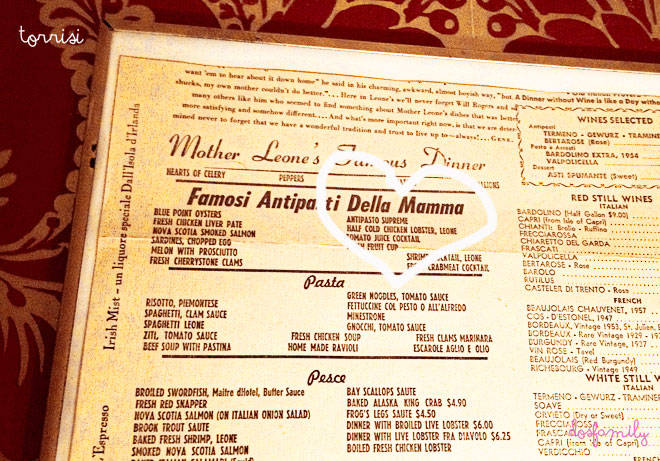 torrisi
want 'em to hear about it down home" he said in his charming, awkward, almost boyish way, "but
shucks, my own mother couldn't do better."... Here in Leone's we'll never forget Will Rogers and
many others like him who seemed to find something about Mother Leone's dishes that was
more satisfying and somehow different.... And what's more important right now, is that we are
mined never to forget that we have a wonderful tradition and trust to live up to—always!...GENE.
Mother Leone's Famous Dinner
HEARTS OF CELERY PEPPERS
Famosi Antipasti Della Mamma
BLUE POINT OYSTERS
FRESH CHICKEN LIVER PATE
NOVA SCOTIA SMOKED SALMON
SARDINES, CHOPPED EGG
MELON WITH PROSCIUTTO
FRESH CHERRYSTONE CLAMS
ANTIPASTO SUPREME
HALF COLD CHICKEN LOBSTER, LEONE
TOMATO JUICE COCKTAIL
FRUIT CUP
SHRIMP COCKTAIL, LEONE
FRESH CRABMEAT COCKTAIL
Pasta
RISOTTO, PIEMONTESE
SPAGHETTI, CLAM SAUCE
SPAGHETTI LEONE
ZITI, TOMATO SAUCE
BEEF SOUP WITH PASTINA
GREEN NOODLES, TOMATO SAUCE
FETTUCCINE COL PESTO O ALL'ALFREDO
MINESTRONE
GNOCCHI, TOMATO SAUCE
FRESH CHICKEN SOUP
HOME MADE RAVIOLI
FRESH CLAMS MARINARA
ESCAROLE AGLIO E OLIO
Pesce
BROILED SWORDFISH, Maitre dHotel, Butter Sauce
FRESH RED SNAPPER
NOVA SCOTIA SALMON (ON ITALIAN ONION SALAD)
BROOK TROUT SAUTE
BAKED FRESH SHRIMP, LEONE
SMOKED NOVA SCOTIA SALMON
BAY SCALLOPS SAUTE
BAKED ALASKA KING CRAB $4.90
FROG'S LEGS SAUTE $4.50
DINNER WITH BROILED LIVE LOBSTER $6.00
DINNER WITH LOBSTER FRA DIAVOLO $6.25
BOILED FRESH CHICKEN LOBSTER
A Dinner without Wine is like a Day
WINES SELECTED
Antipasti
TERMENO - GEWURZ - TRAMINER
BERTAROSE (Rose)
Pasta e Arrosti
BARDOLINO EXTRA, 1954
VALPOLICELLA
Dessert
ASTI SPUMANTE (Sweet)
RED STILL WINES
ITALIAN
BARDOLINO (Half Gallon $9.00)
CAPRI (from Isle of Capri)
CHIANTI: Brolio - Ruffino
FRECCIAROSSA
CHIARETTO DEL GARDA
FRASCATI
VALPOLICELLA
BERTAROSE - Rose
BAROLO
RUTILUS
CASTELER DI TRENTO - Rose
FRENCH
BEAUJOLAIS CHAUVENET, 1957
COS - D'ESTONEL, 1947
BORDEAUX, Vintage 1953, St. Julien
BORDEAUX - Rare Vintage 1929
BURGUNDY - Rare Vintage 1937
VIN ROSE - Tavel
BEAUJOLAIS (Red Burgundy)
RICHEBOURG - Vintage 1949
WHITE STILL
ITALIAN
TERMENO - GEWURZ - TRAMINER
SOAVE
ORVIETO (Dry or Sweet)
FRECCIAROSSA
FRASCATI
CAPRI (from Isle of Capri)
Irish Mist - un liquore speciale Dall'Isola d'Irlanda
Espresso
dosfamily